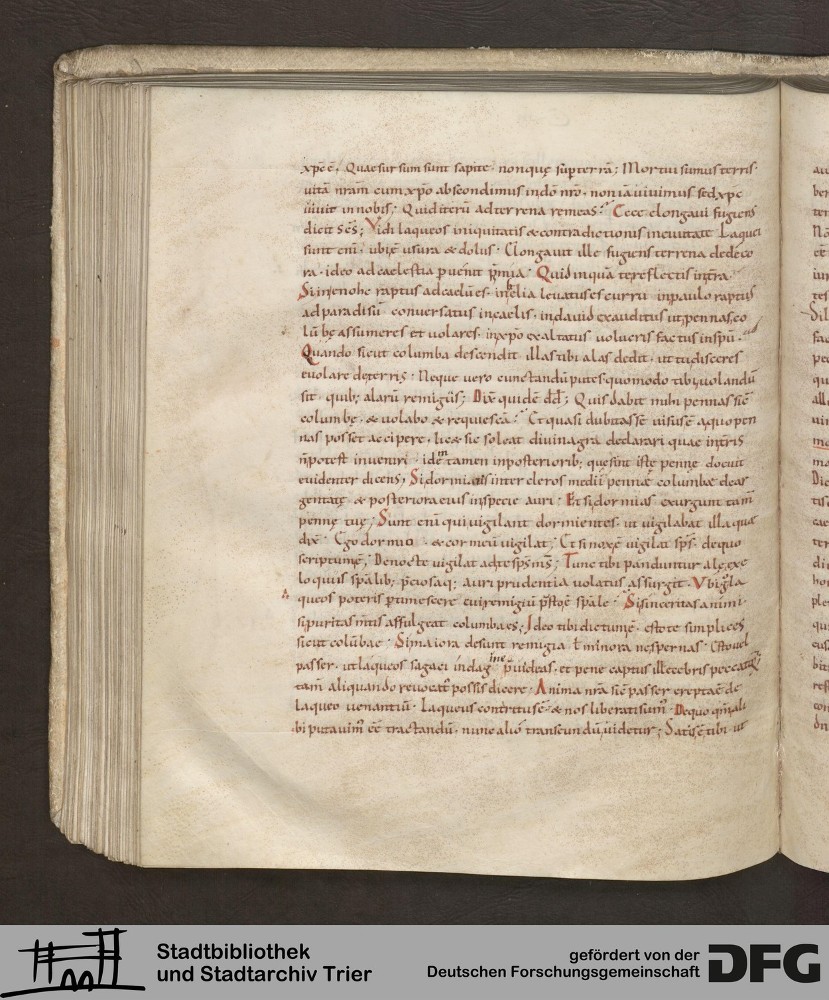 xp̄c ē, Quae sursum sunt sapite. non quę sup̄ terrā; Mortui sumus terris.
uitā nrām cum xp̄o abscondimus in dō nr̄o. non iā uiuimus sed xp̄c
uiuit in nobis; Quid iterū ad terrena remeas? Ecce elongaui fugiens
dicit sc̄s; Vidi laqueos iniquitatis & contradictionis in ciuitate Laquei
sunt eni. ubi ē usura & dolus. Elongauit ille fugiens terrena
ra. ideo ad caelestia puenit
Si in enohc raptus ad caelū es. in helia leuatus es curru in paulo raptus
ad paradisū conuersatus in caelis. in dauid exauditus
assumeres et uolares. in xp̄o exaltatus uolueris factus in sp̄u.
Quando sicut columba descendit. illas tibi alas dedit. ut tu disceres
euolare de terris. Neque uero cunctandū putes. quomodo tibi uolandū
sit. quib; alarū remigiis; Dix̄ quidē dd̄; Quis dabit mihi pennas sic̄
columbę. & uolabo & requiescā? Et quasi dubitasse uisus ē a quo pen
nas posset accipere. lic& sic soleat diuina declarari quae in
potest inueniri. idem tamen in posteriorib; quę sint istę pennę docuit
euidenter dicens; Si dormiatis inter cleros medii pennę columbae dear
gentatę & posteriora eius in specie auri. Et si dormias exurgunt tam̄
pennę tuę; Sunt eni qui uigilant dormientes. ut uigilabat illa quae
dix̄. Ego dormio. & cor meū uigilat; Et si nox ē uigilat sp̄s. de quo
scriptum ē; De nocte uigilat ad te sp̄s ms̄; Tunc tibi panduntur alę. ex e
loquiis
queos poteris
si puritas mitis affulgeat columba es; Ideo tibi dictum ē. estote simplices
sicut colūbae. Si maiora desunt remigia ł minora ne spernas. Esto uel
passer. ut laqueos sagaci indagine p̄uideas. et pene captus illecebris
tam̄ aliquando possis dicere. Anima nrā sic̄ passer erepta ē de
laqueo uenantiū. Laqueus contritus ē. & nos liberati sum̄. De quo qm̄ ali
bi putauim̄ ēē tractandū. nunc alio transeundū uidetur; Satis ē tibi. ut
Stadtbibliothek
und Stadtarchiv Trier
gefördert von der
Deutschen Forschungsgemeinschaft
DFG